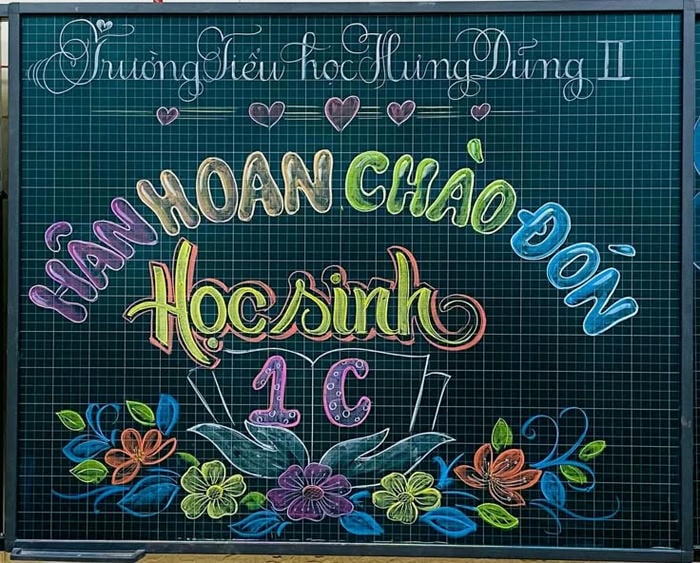 Trường Tiểu học Hưng Dũng II
HÂN HOAN CHÀO ĐÓN
Học sinh
1C